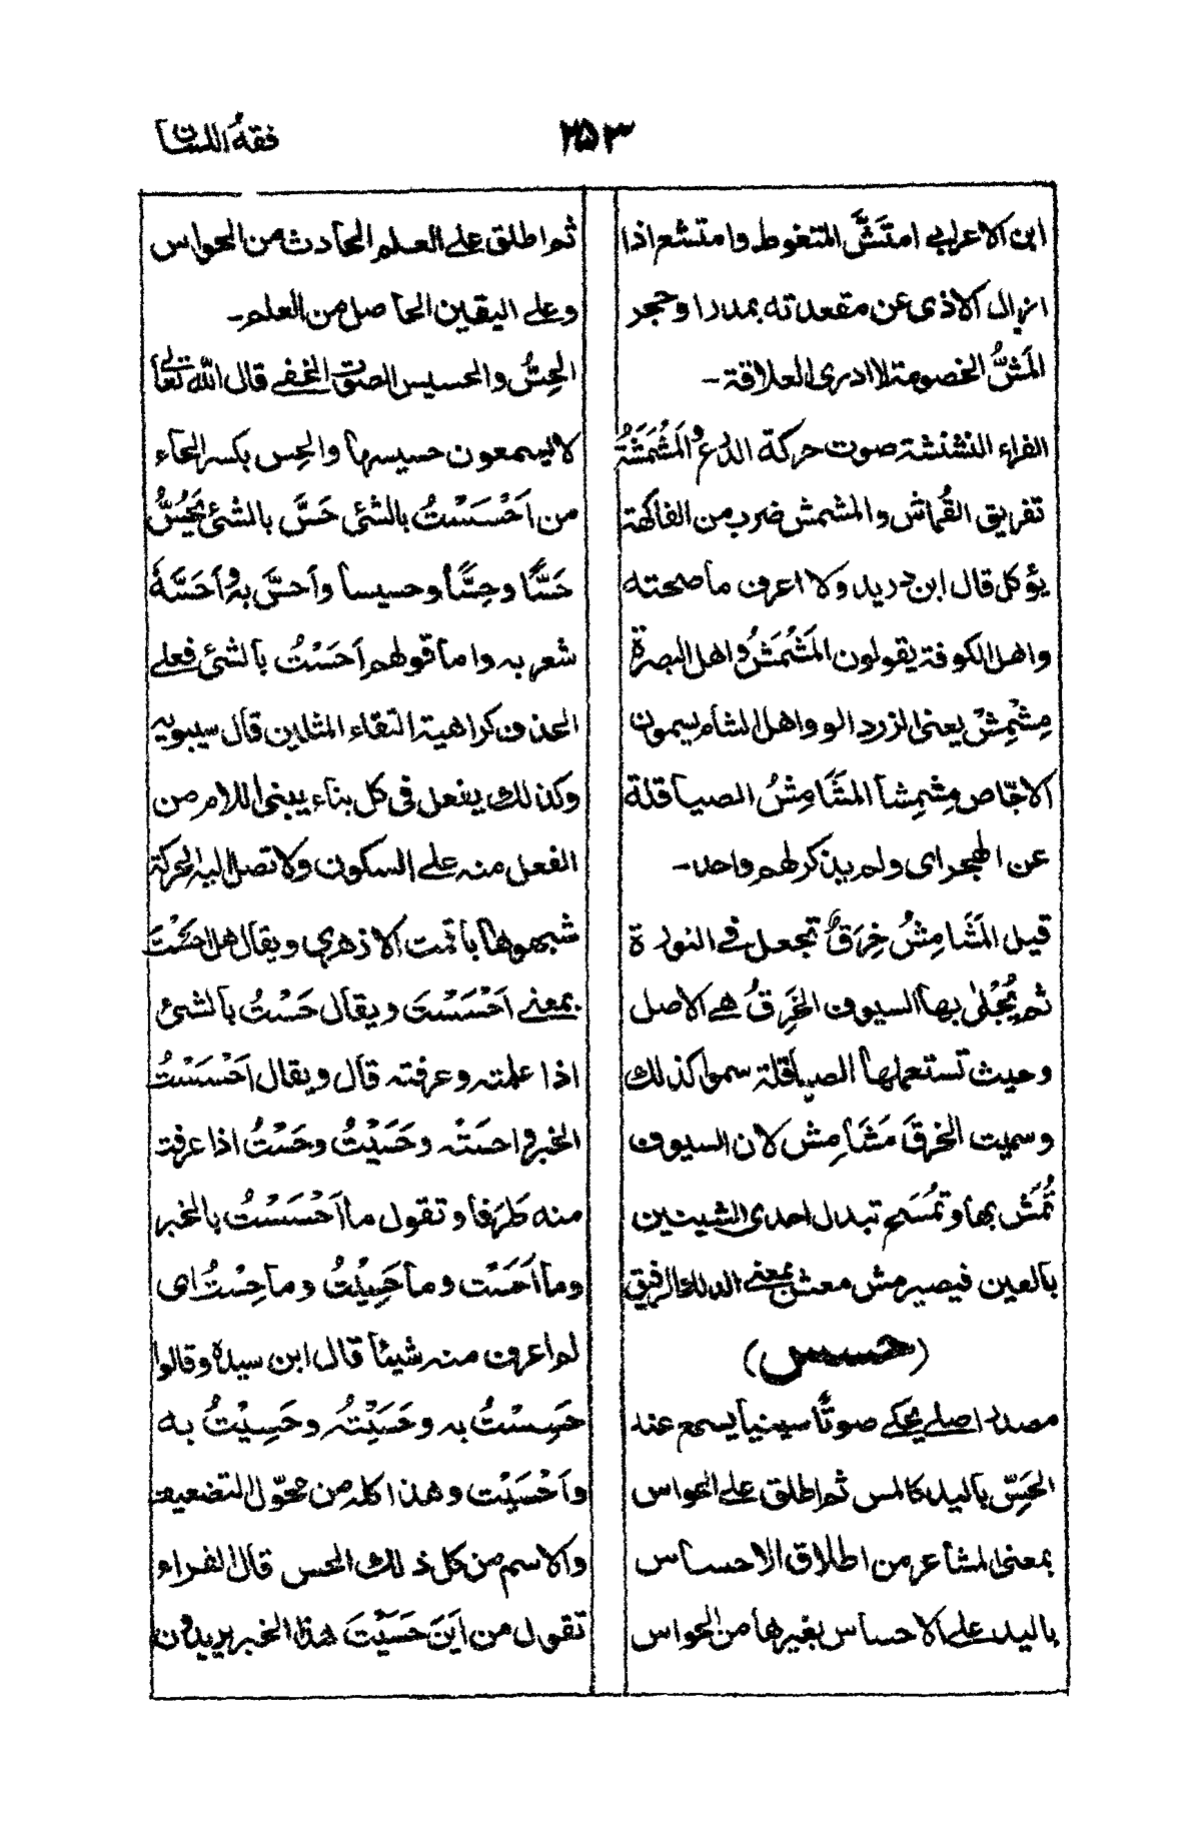 فقه اللسان
٢٥٣
ابن الاعرابي امتَشَّ المتغوط وامتشع اذا
ازال الاذى عن مقعدته بمدر او حجر
المَشُّ الخصومة لا ادرى العلاقة ـ
الفراء النشنشة صوت حركة الدروع والمَشْمَشَةُ
تفريق القُماش والمشمش ضرب من الفاكهة
يؤكل قال ابن دريد ولا اعرف ما صحته
واهل الكوفة يقولون المَشْمَشُ واهل البصرة
مِشْمِشٌ يعنى الزرد الو واهل الشام يسمون
الاجّاص مِشمِشا المَشَامِشُ الصياقلة
عن الهجراى ولم يذكر لهم واحد ـ
قيل المَشَامِشُ خِرَقٌ تجعل في النورة
ثم يُجْلى بها السيوف الخِرَقُ هي الاصل
وحيث تستعملها الصياقلة سموا كذلك
وسميت الخرقَ مَشَامِش لان السيوف
تُمَشّ بها وتُمسَح تبدل احدى الشينين
بالعين فيصير مش معش بمعنى الدلك الرفيق
(حسس)
مصدر اصلي يحكي صوتًا سينيا يسمع عند
الحَسّ باليد كالمس ثم اطلق على الحواس
بمعنى المشاعر من اطلاق الاحساس
باليد على الاحساس بغيرها من الحواس
ثم اطلق على العلم الحادث من الحواس
وعلى اليقين الحاصل من العلم ـ
الحِسُّ والحسيس الصوت الخفي قال الله تعالى
لا يسمعون حسيسها والحِس بكسر الحاء
من اَحْسَسْتُ بالشئ حَسَّ بالشئ يَحُسُّ
حَسًّا وحِسًّا وحسيسا واَحسَّ به واَحَسَّهُ
شعر به واما قولهم اَحَسْتُ بالشئ فعلى
الحذف كراهية التقاء المثلين قال سيبويه
وكذلك يفعل في كل بناء يبنى اللام من
الفعل منه على السكون ولا تصل اليه الحركة
شبهوها باقمت الازهري ويقال هل احَسْتَ
بمعنى اَحْسَسْتَ ويقال حَسْتُ بالشئ
اذا علمته وعرفته قال ويقال اَحْسَسْتُ
الخبر واحسَتْه وحَسَيْتُ وحَسْتُ اذا عرفت
منه طَرَفا وتقول ما اَحْسَسْتُ بالخبر
وما اَحَسْت وما حَسِيْتُ وما حِسْتُ اى
لم اعرف منه شيئا قال ابن سيدہ وقالوا
حَسِسْتُ به وحَسَيْتُه وحَسِيْتُ به
واَحْسَيْت وهذا كله من محوّل التضعيف
والاسم من كل ذلك الحس قال الفراء
تقول من اَينَ حَسَيْتَ هذا الخبر يريدون